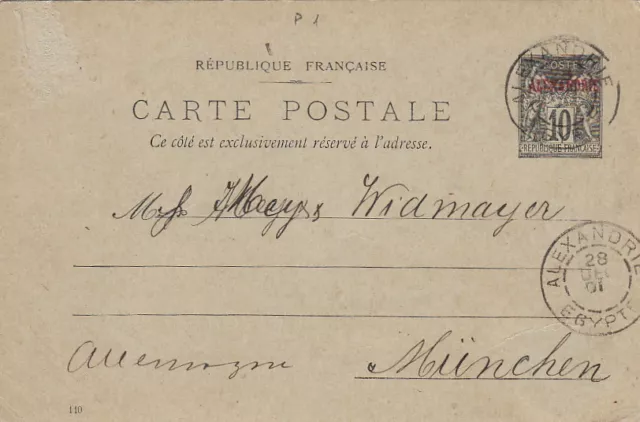 P 1
RÉPUBLIQUE FRANÇAISE
CARTE POSTALE
Ce côté est exclusivement réservé à l'adresse.
ALEXANDRIE
POSTES
ALEXANDRIE
10
RÉPUBLIQUE FRANÇAISE
Widmayer
ALEXANDRIE
28
DEC
01
EGYPTE
Allemagne München
110